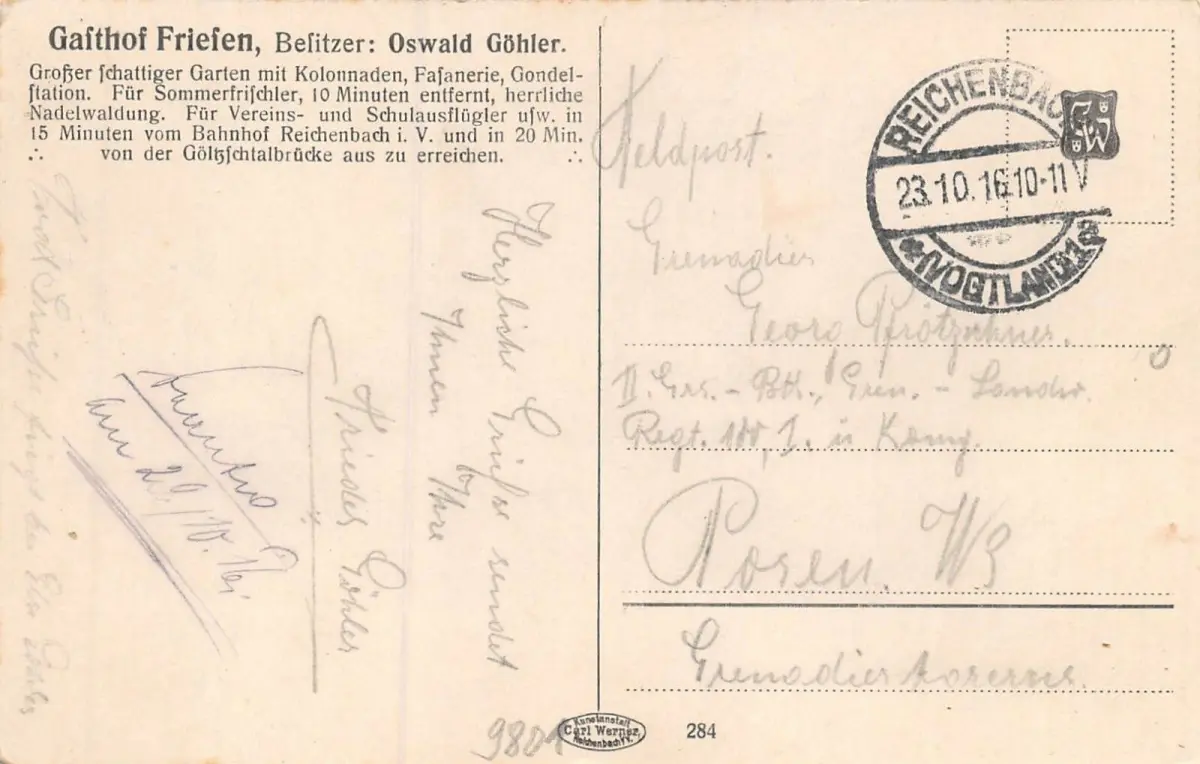 Gasthof Friesen, Besitzer: Oswald Göhler.
Großer schattiger Garten mit Kolonnaden, Fasanerie, Gondel-
station. Für Sommerfrischler, 10 Minuten entfernt, herrliche
Nadelwaldung. Für Vereins- und Schulausflügler usw. in
15 Minuten vom Bahnhof Reichenbach i. V. und in 20 Min.
∴ von der Göltzschtalbrücke aus zu erreichen. ∴
Herzliche Grüße sendet
Ihnen Ihre
Frieda Göhler
am 29/10. 16
9801
Feldpost.
Grenadier
Georg
II. Ers. - Btl., Gren. - Landw.
Regt. 100, I. u König.
Posen. W3
Grenadierkaserne.
REICHENBACH
23.10.16.10-11V
*(VOGTLAND)1a
Kunstanstalt
Carl Werner,
Reichenbach i V.
284